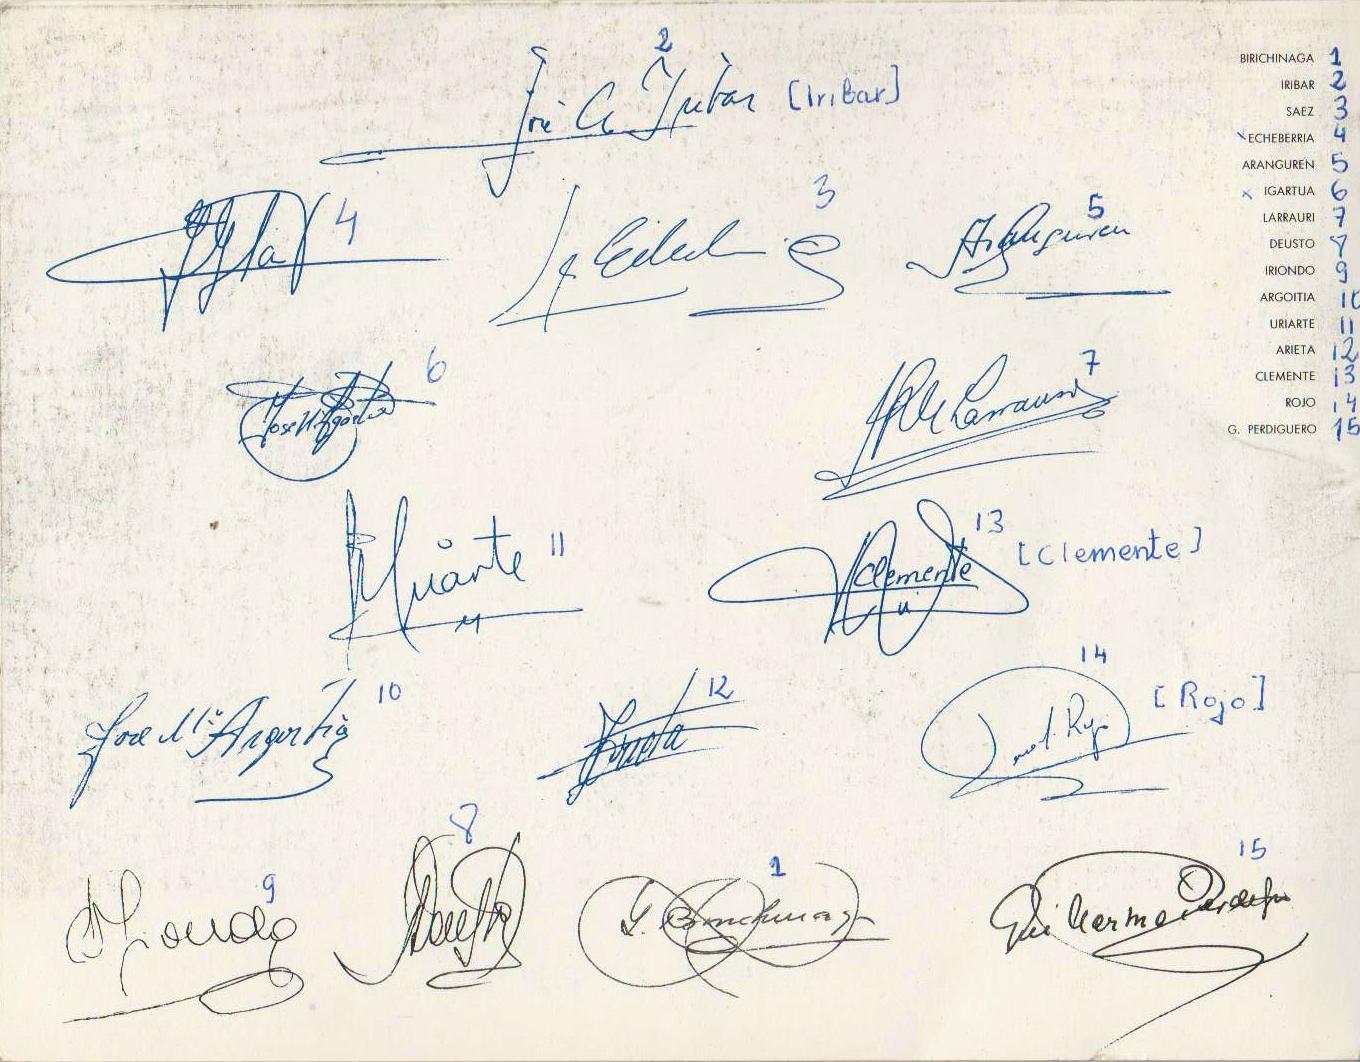 2
José A. Iribar [Iribar]
4
3
5
Aranguren
6
José M Igartua
7
Larrauri
Uriarte 11
13
Clemente [Clemente]
10
José Mª Argoitia
12
Arieta
14
Rojo [Rojo]
9
Iriondo
8
Deusto
1
15
Guillermo
BIRICHINAGA 1
IRIBAR 2
SAEZ 3
x ECHEBERRIA 4
ARANGUREN 5
x IGARTUA 6
LARRAURI 7
DEUSTO 8
IRIONDO 9
ARGOITIA 10
URIARTE 11
ARIETA 12
CLEMENTE 13
ROJO 14
G. PERDIGUERO 15